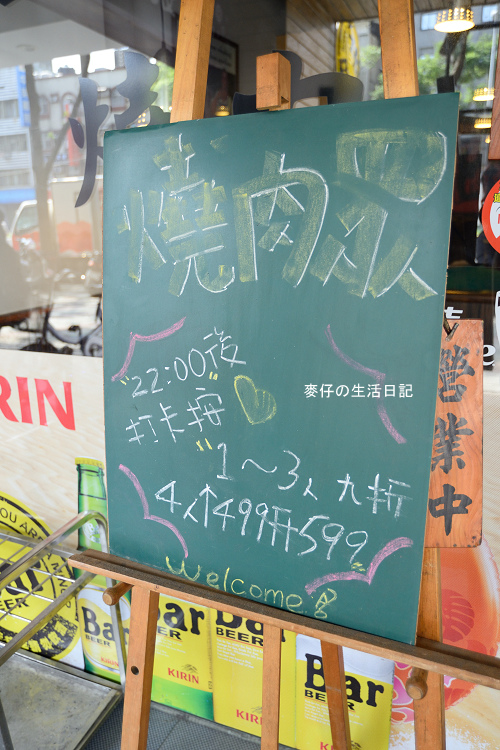 燒肉眾
"22:00後
打卡按"
1~3人 九折
4人↑499升599
Welcome
麥仔の生活日記
営業中
RIN
YOU AR
Bar
BEER
KIRIN
Bar
BEER
KIRIN
Bar
BEER
KIRIN